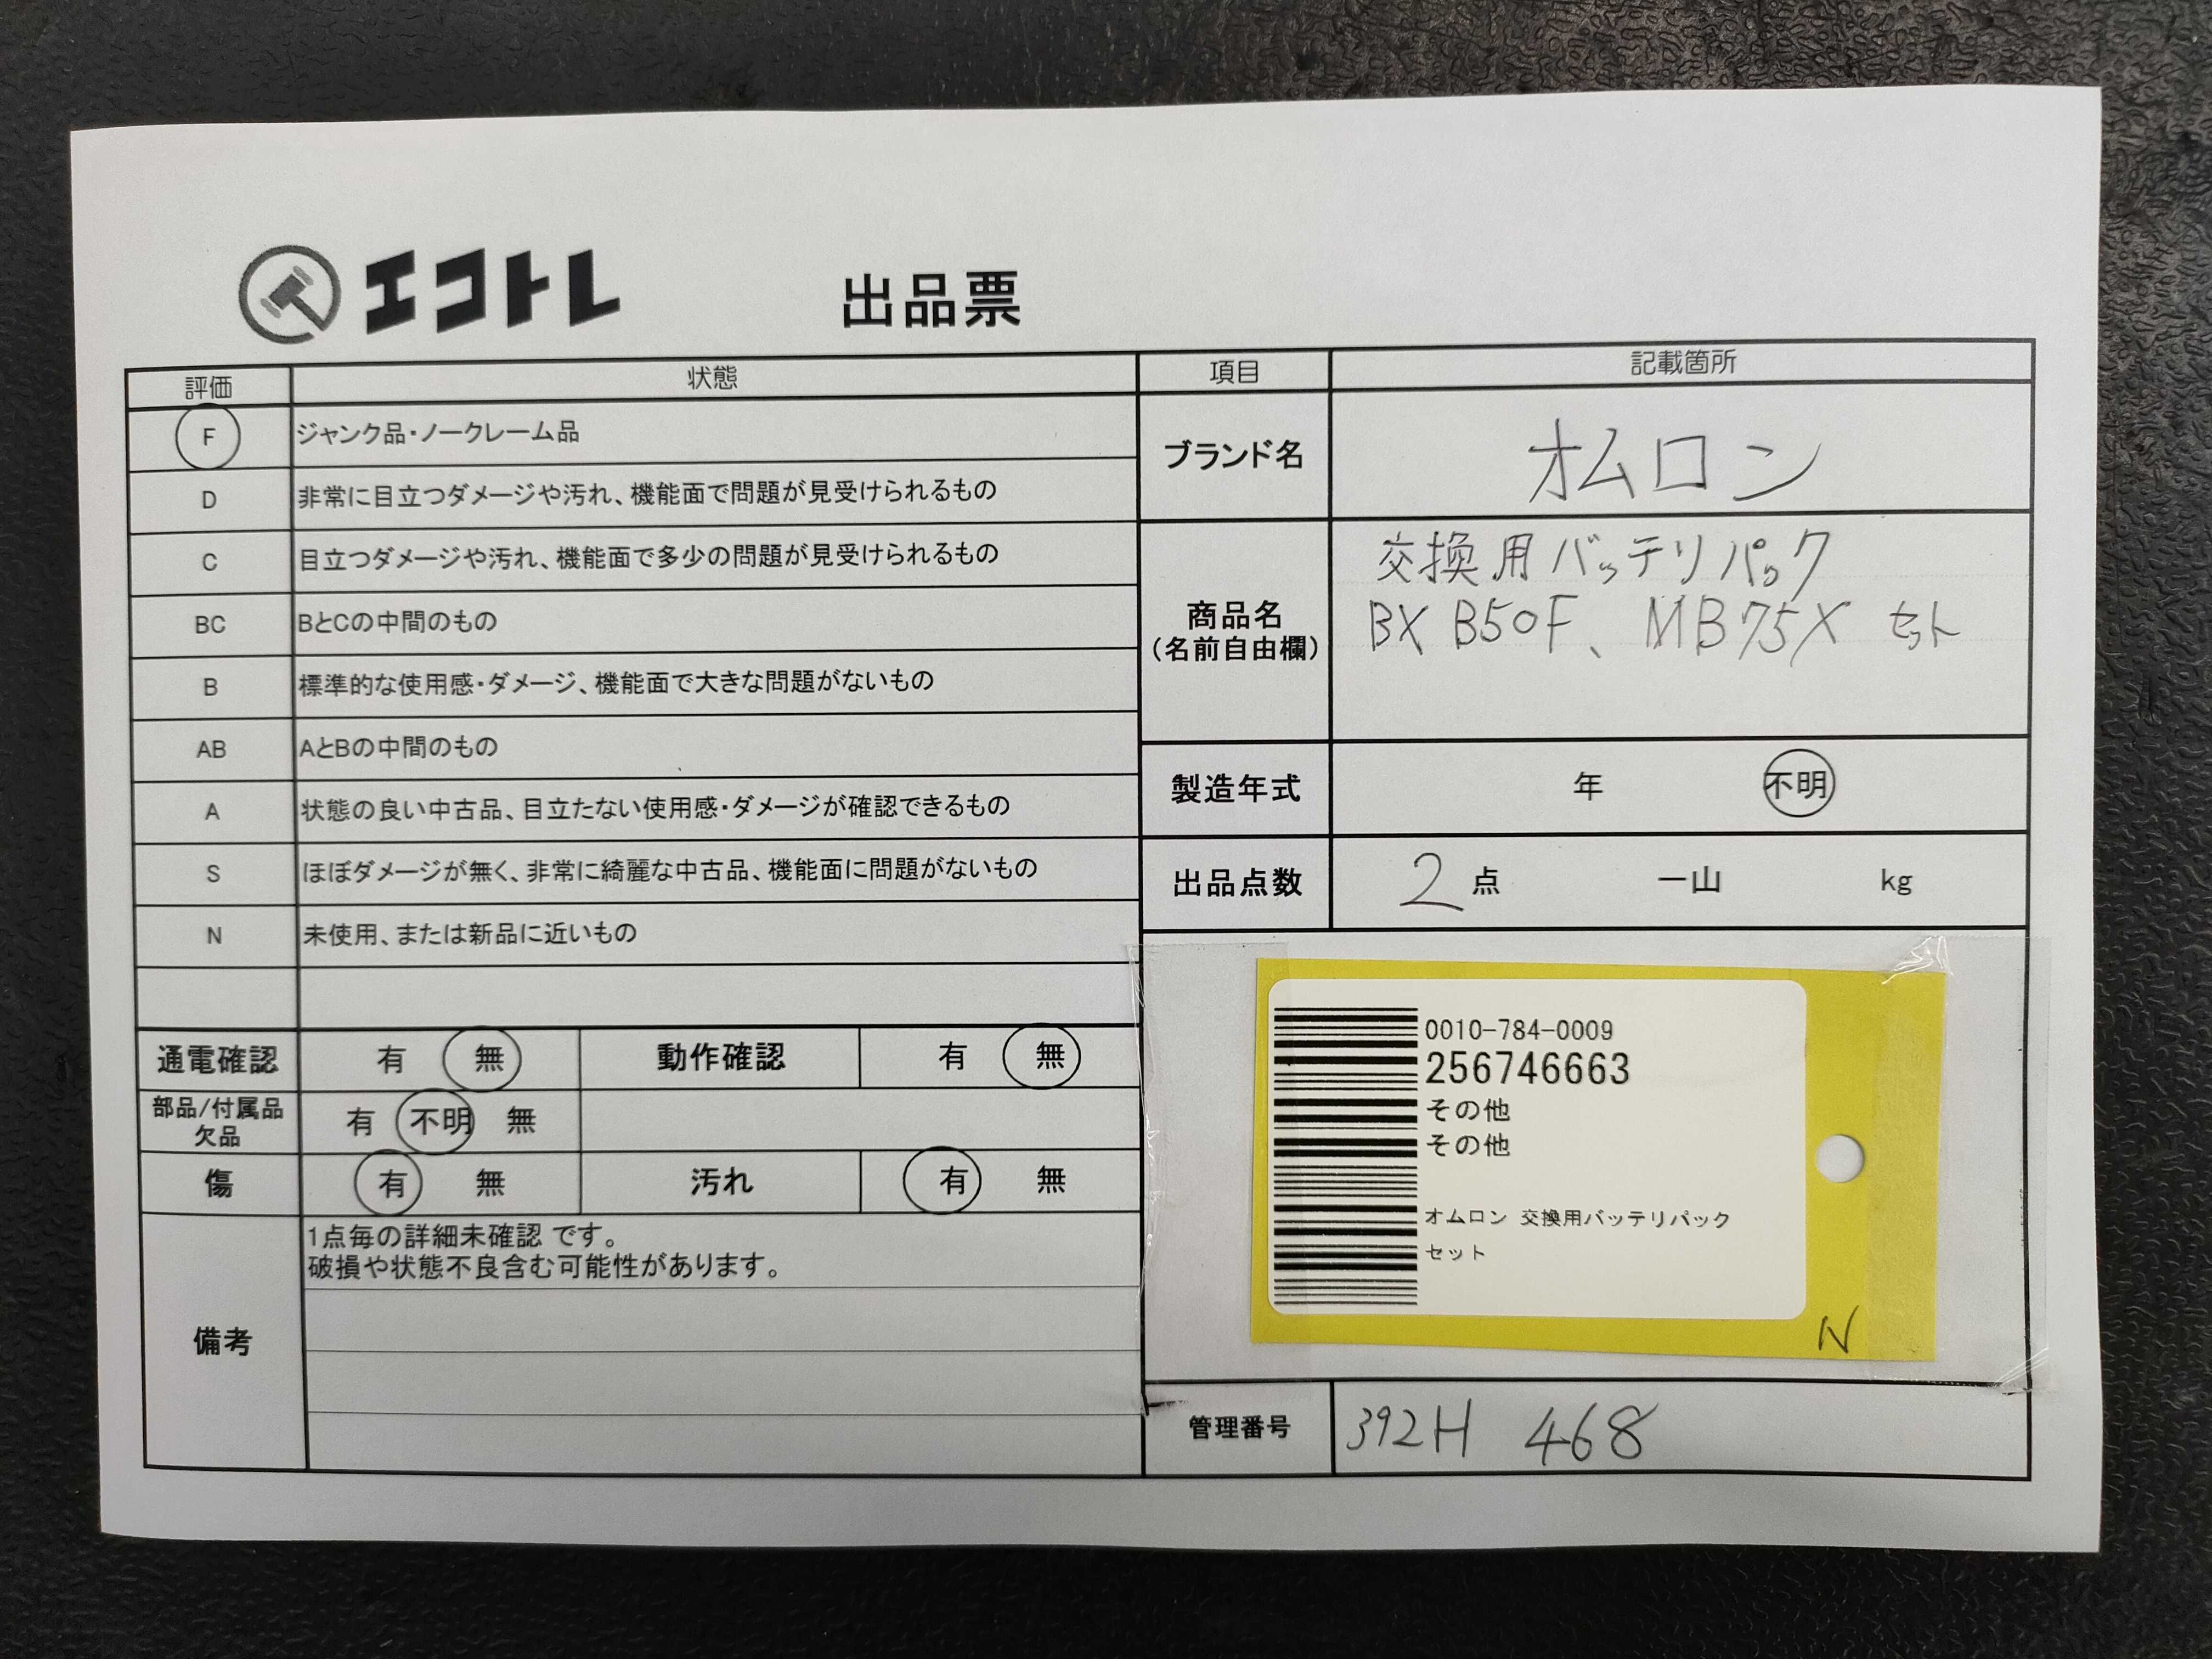 エコトレ
出品票
評価 状態
F ジャンク品・ノークレーム品
D 非常に目立つダメージや汚れ、機能面で問題が見受けられるもの
C 目立つダメージや汚れ、機能面で多少の問題が見受けられるもの
BC BとCの中間のもの
B 標準的な使用感・ダメージ、機能面で大きな問題がないもの
AB AとBの中間のもの
A 状態の良い中古品、目立たない使用感・ダメージが確認できるもの
S ほぼダメージが無く、非常に綺麗な中古品、機能面に問題がないもの
N 未使用、または新品に近いもの
通電確認 有 無 動作確認 有 無
部品/付属品
欠品
有 不明 無
傷 有 無 汚れ 有 無
備考
1点毎の詳細未確認 です。
破損や状態不良含む可能性があります。
項目 記載箇所
ブランド名 オムロン
商品名
(名前自由欄)
交換用バッテリパック
BX B50F、MB75X セット
製造年式 年 不明
出品点数 2 点 一山 kg
0010-784-0009
256746663
その他
その他
オムロン 交換用バッテリパック
セット
N
管理番号 392H 468